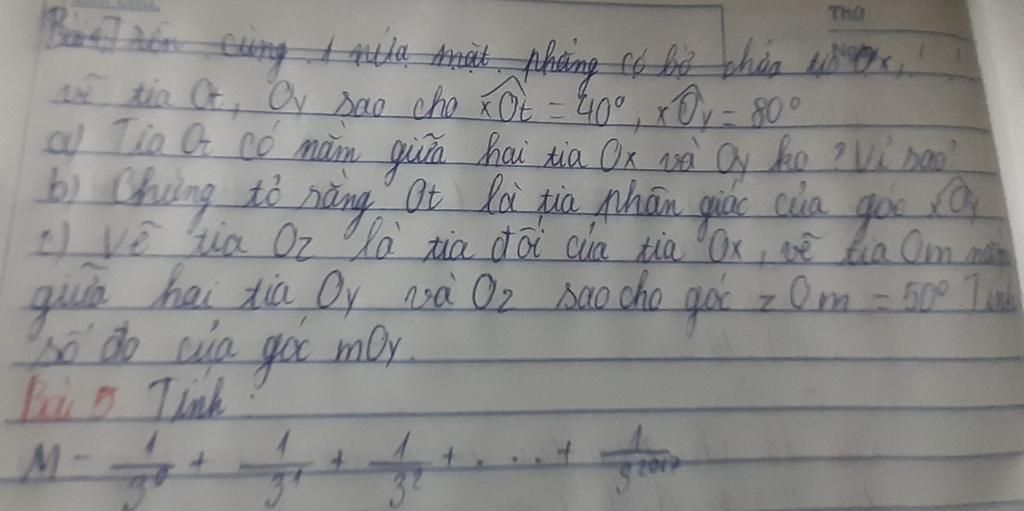 Thứ
Ngày
Bài 4 Trên cùng 1 nửa mặt phẳng có bờ chứa tia Ox,
vẽ tia Ot, Oy sao cho xOt = 40°, xOy = 80°
a) Tia Ot có nằm giữa hai tia Ox và Oy ko ? Vì sao?
b) Chứng tỏ rằng Ot là tia phân giác của góc xOy
c) Vẽ tia Oz là tia đối của tia Ox, vẽ tia Om nằm
giữa hai tia Oy và Oz sao cho góc zOm = 50°. Tính
số đo của góc mOy.
Bài 5 Tính
M = 1/3⁰ + 1/3¹ + 1/3² + . . . . +